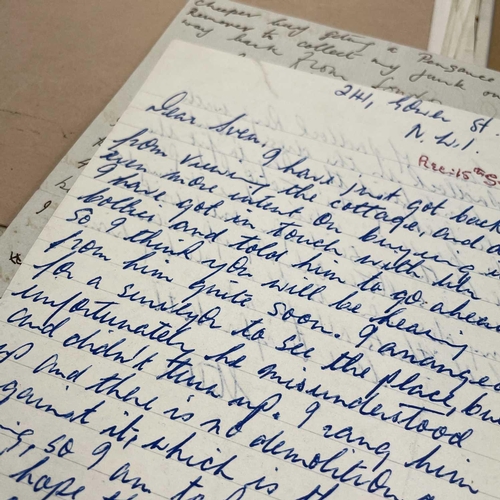 cheaper buy getting a Penzance
Remover to collect my junk on
way back from London
241, Gower St
N.W.1.
Rec: 15th S
Dear Sven, I have just got back
from viewing the cottage and
even more intent on buying
I have got in touch with
bother and told him to go ahead
so I think you will be hearing
from him quite soon. I arranged
for a surveyor to see the place, but
unfortunately he misunderstood
and didn't turn up. I rang him
up and there is no demolition
against it, which is
so I am to
hope